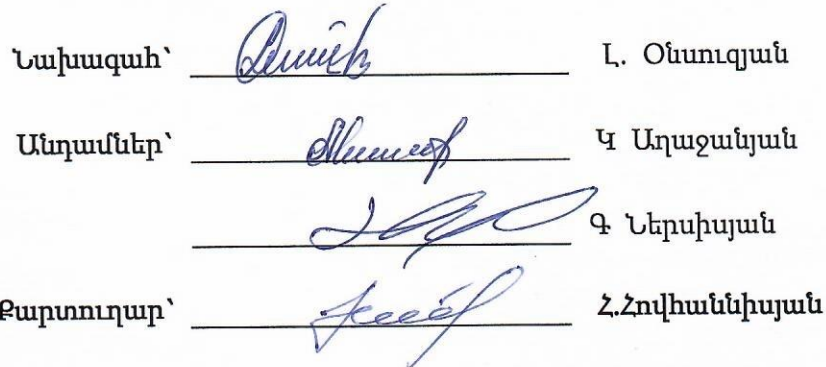 Նախագահ՝ Լ. Օնսուզյան
Անդամներ՝ Կ Աղաջանյան
Գ Ներսիսյան
Քարտուղար՝ Հ.Հովհաննիսյան